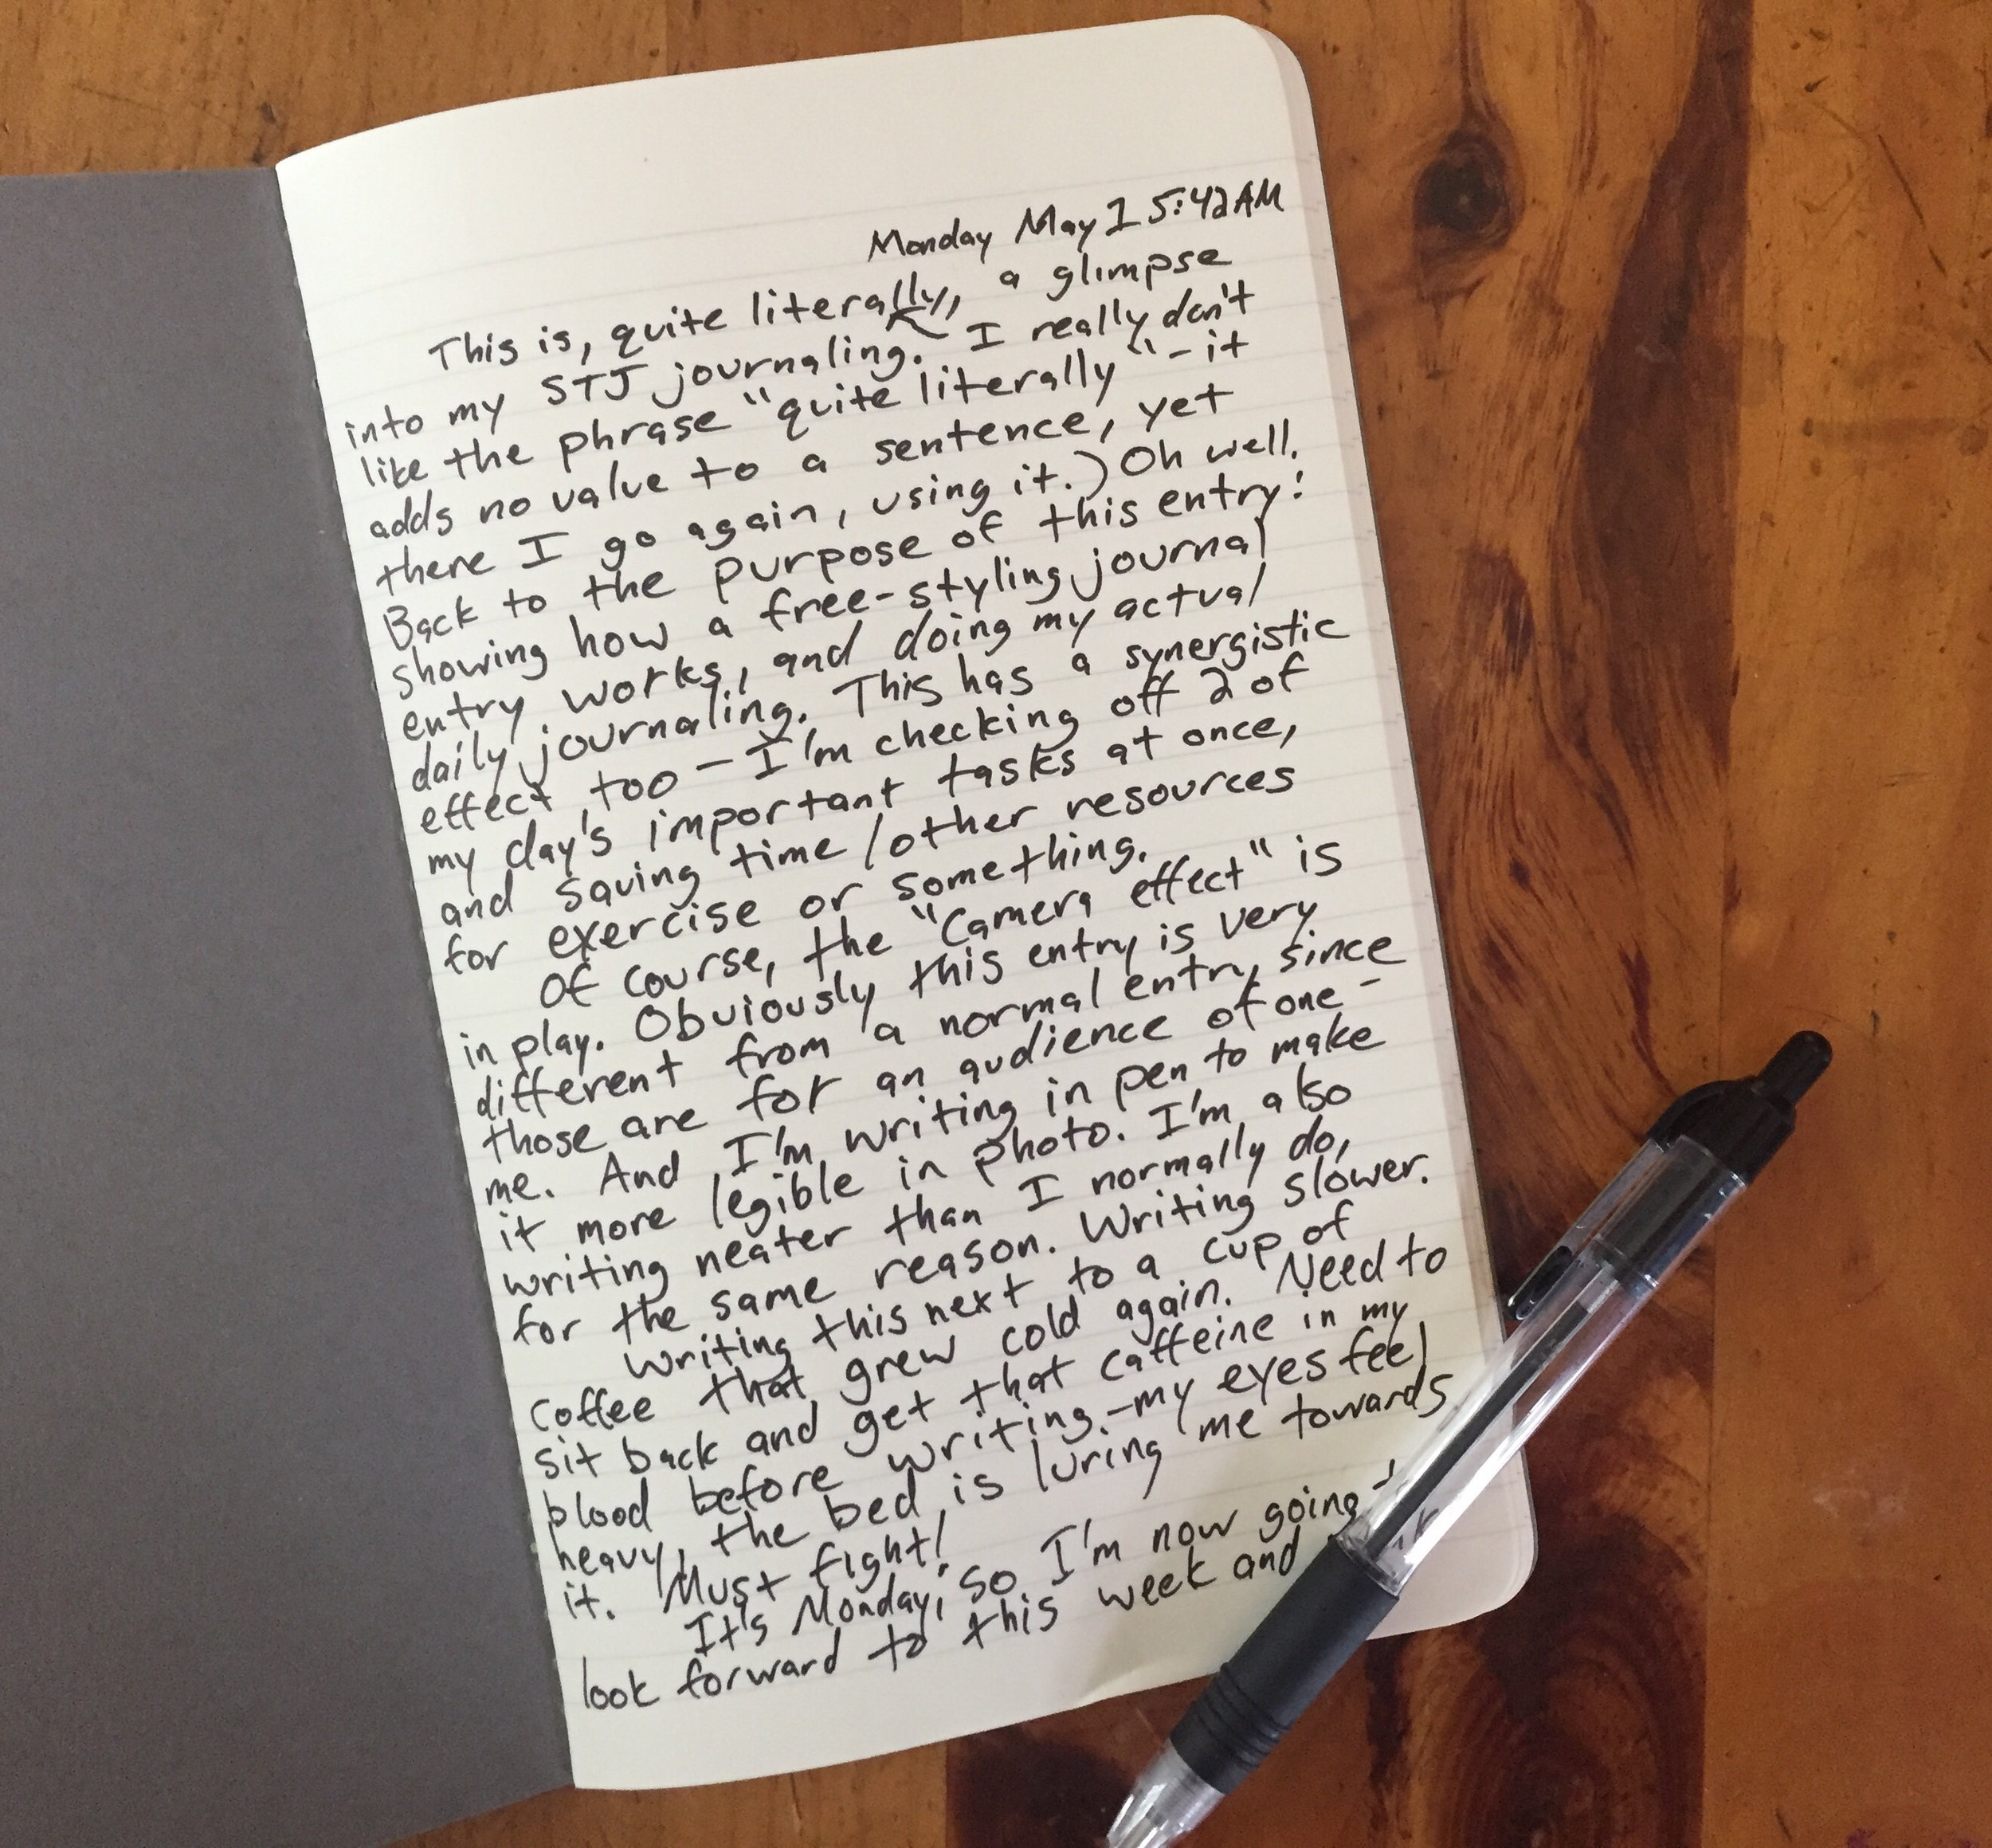 Monday May 1 5:42AM
This is, quite literally, a glimpse
into my STJ journaling. I really don't
like the phrase "quite literally" - it
adds no value to a sentence, yet
there I go again, using it.) Oh well.
Back to the purpose of this entry:
showing how a free-styling journal
entry works, and doing my actual
daily journaling. This has a synergistic
effect, too - I'm checking off 2 of
my day's important tasks at once,
and saving time/other resources
for exercise or something.
Of course, the "Camera effect" is
in play. Obviously this entry is very
different from a normal entry, since
those are for an audience of one -
me. And I'm writing in pen to make
it more legible in photo. I'm also
writing neater than I normally do,
for the same reason. Writing slower.
Writing this next to a cup of
Coffee that grew cold again. Need to
sit back and get that caffeine in my
blood before writing - my eyes feel
heavy, the bed is luring me towards
it. Must fight!
It's Monday, so I'm now going
look forward to this week and